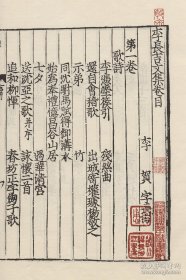 李長吉文集卷目
李賀字長吉
第一卷
歌詩
李憑箜篌引 殘絲曲
還自會稽歌 出城寄權璩楊敬之
示弟 竹
同沈駙馬賦得御溝水
始為奉禮憶昌谷山居
七夕 過華清宮
送沈亞之歌并序 詠懷二首
追和柳惲 春坊正字劍子歌